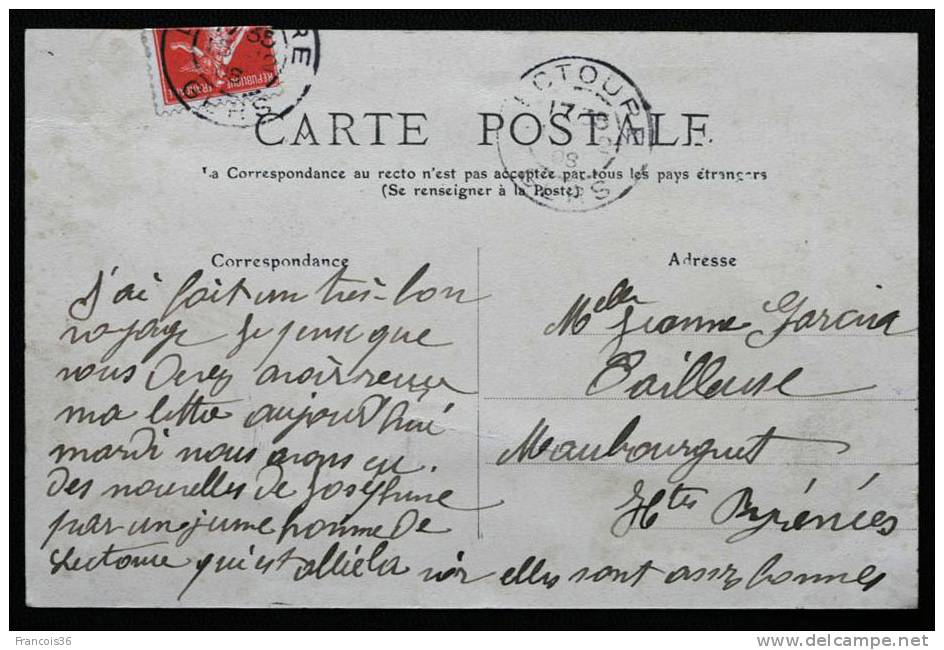 RÉPUBLIQUE FRANÇAISE
GERS
LECTOURE
GERS
CARTE POSTALE
La Correspondance au recto n'est pas acceptée par tous les pays étrangers
(Se renseigner à la Poste)
Correspondance
J'ai fait un très-bon
voyage je pense que
vous devez avoir reçu
ma lettre aujourd'hui
mardi nous avons eu
des nouvelles de Joséphine
par un jeune homme de
Lectoure qui est allé la voir elles sont assez bonnes
Adresse
Melle Jeanne Garcia
Tailleuse
Maubourguet
Htes Pyrénées
François36
delcampe.net